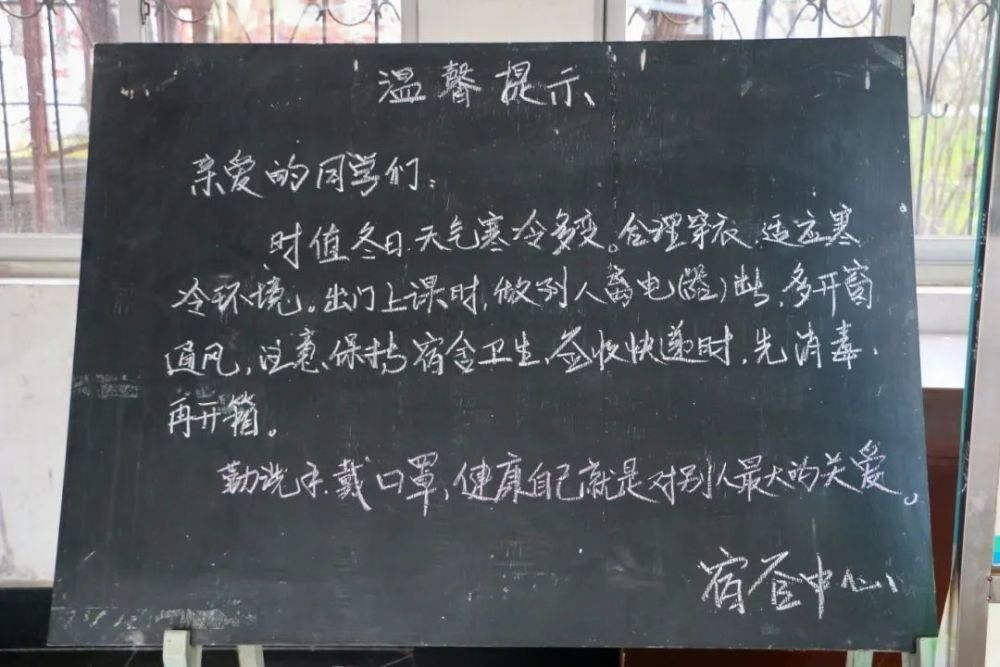 温馨提示
亲爱的同学们:
时值冬日,天气寒冷多变。合理穿衣,适应寒
冷环境。出门上课时,做到人离电(器)断,多开窗
通风,注意保持宿舍卫生,签收快递时,先消毒,
再开箱。
勤洗手,戴口罩,健康自己就是对别人最大的关爱。
宿管中心